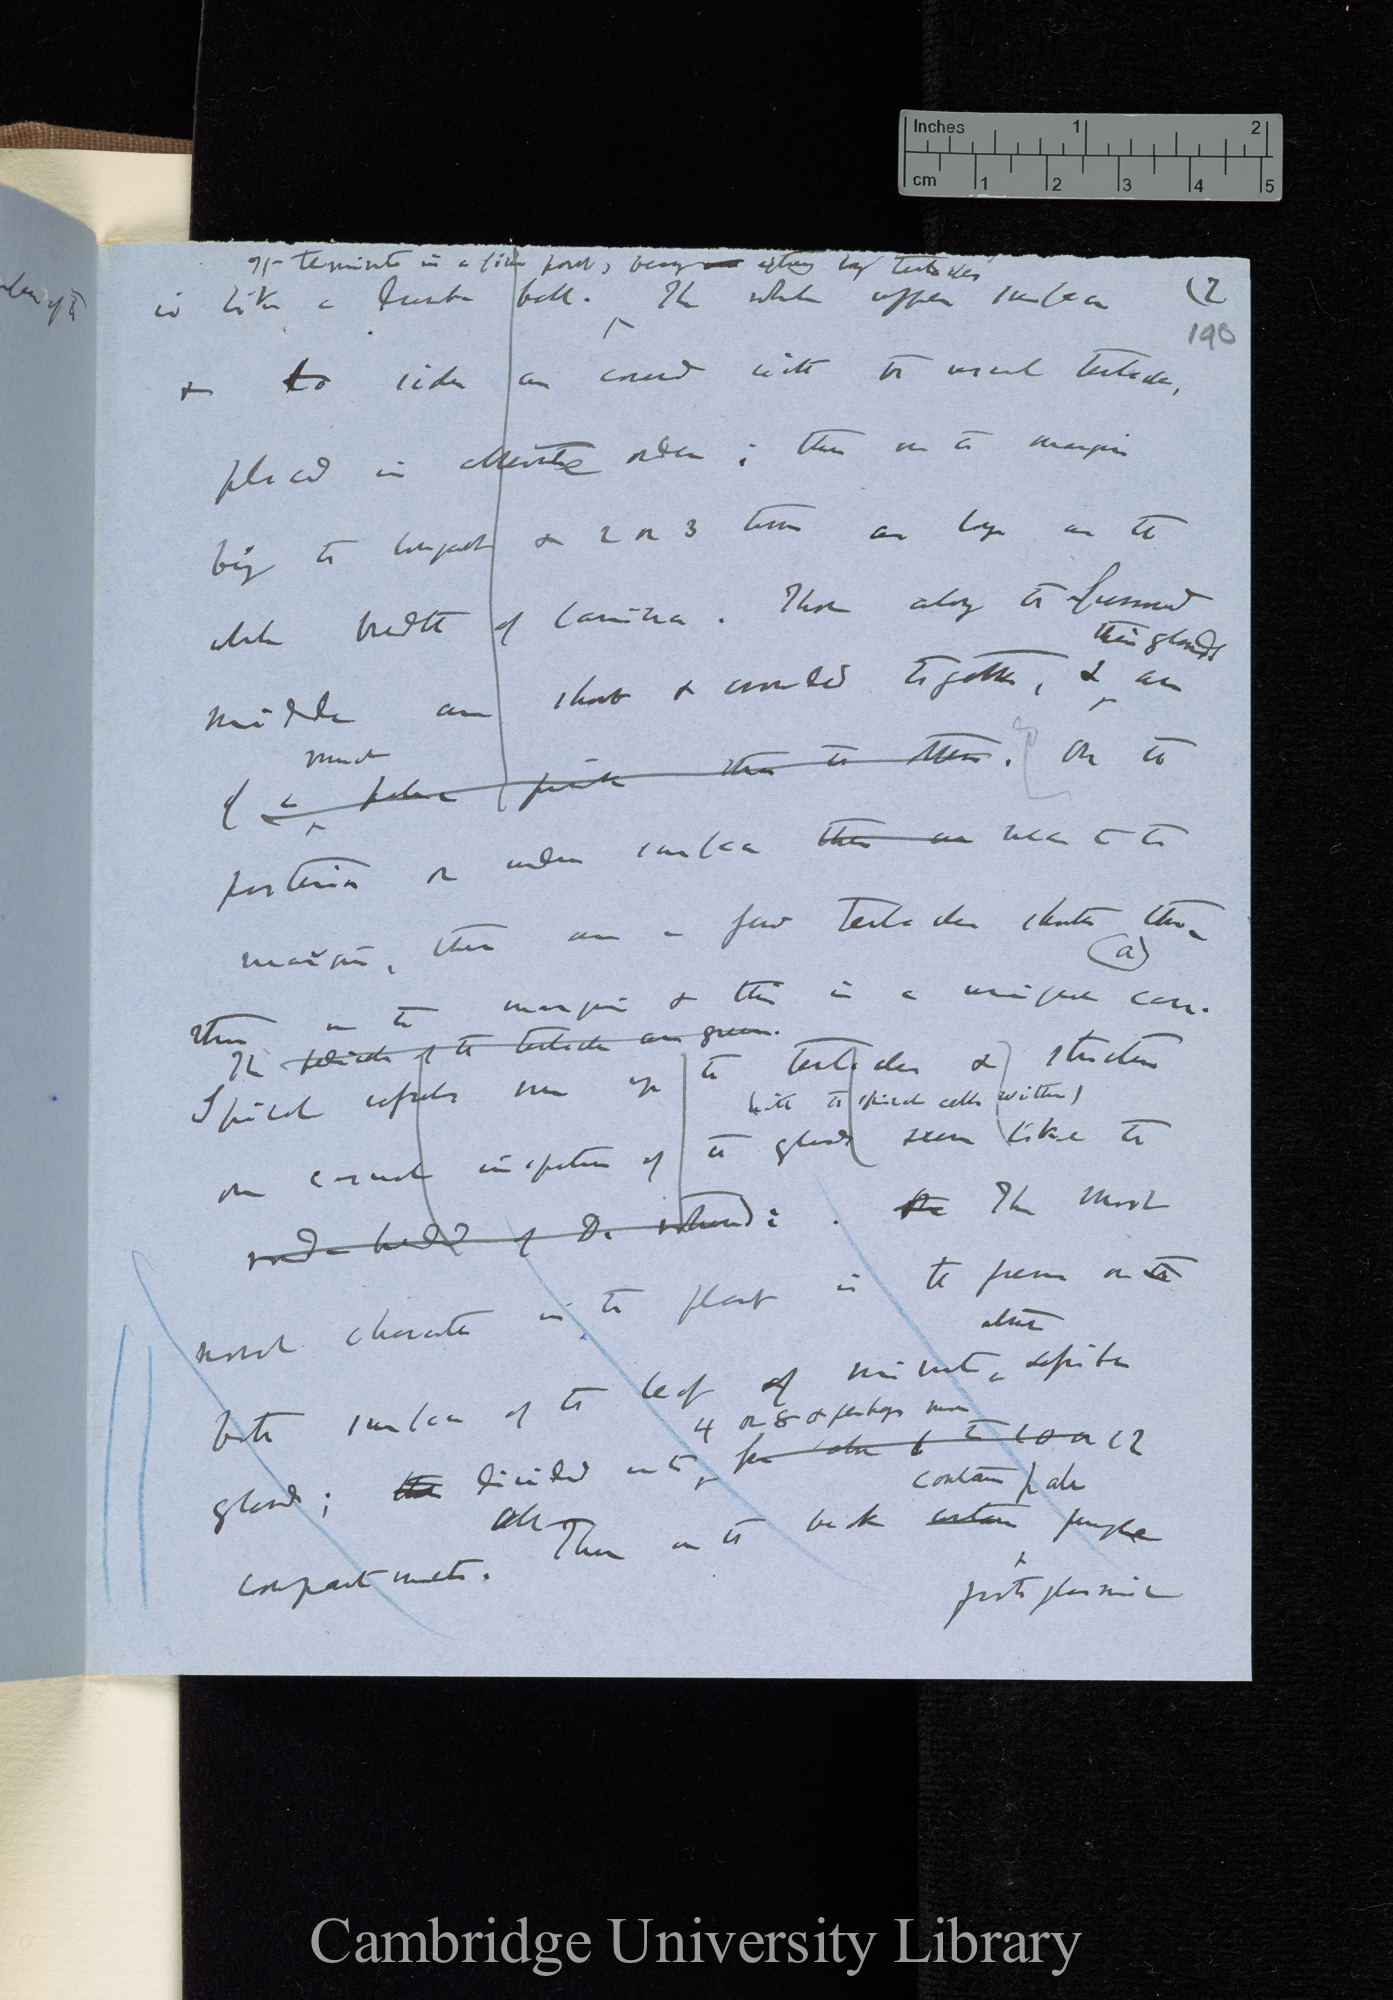 Inches 1 2
cm 1 2 3 4 5
It terminates in a fine point, being by tentacles
is like a bell. The whole upper surface (2
190
& to sides are covered with the usual tentacles,
placed in alternate order; those on the margin
being the longest & 2 or 3 times as long as the
whole breadth of lamina. Those along the
their glands
middle are short & crowded together, & are
much
of a paler pink than the others. On the
posterior or under surface there are near to the
margin, there are a few tentacles shorter than
(a)
those on the margin & this is a unique case.
The pedicels of the tentacles are green.
Spiral vessels run up the tentacles & structure
(with the spiral cells within)
on casual inspection of the glands seem like the
of D. rotundi: . The The most
novel character in the plant is the presence on the
other
both surfaces of the leaf of minute definite
4 or 8 & perhaps more
glands; the divided into 6 to 10 or 12
contain pale
compartments. Those on the back contain purple
protoplasmic
Cambridge University Library